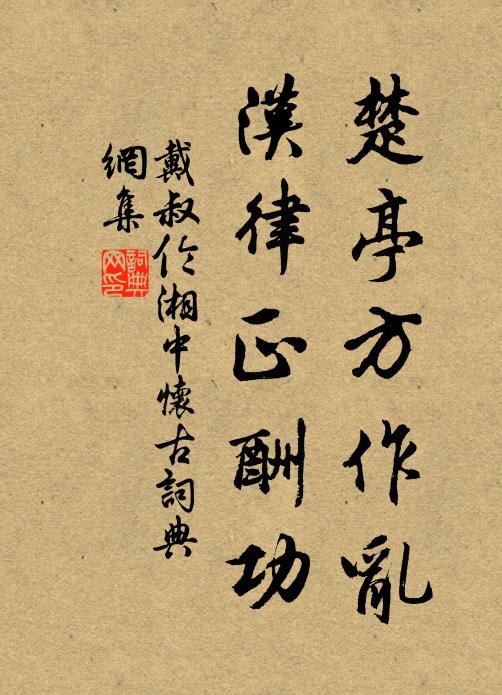 楚亭方作亂
漢律正酬功
戴叔伦湘中懷古詞典
網集
詞典
网印